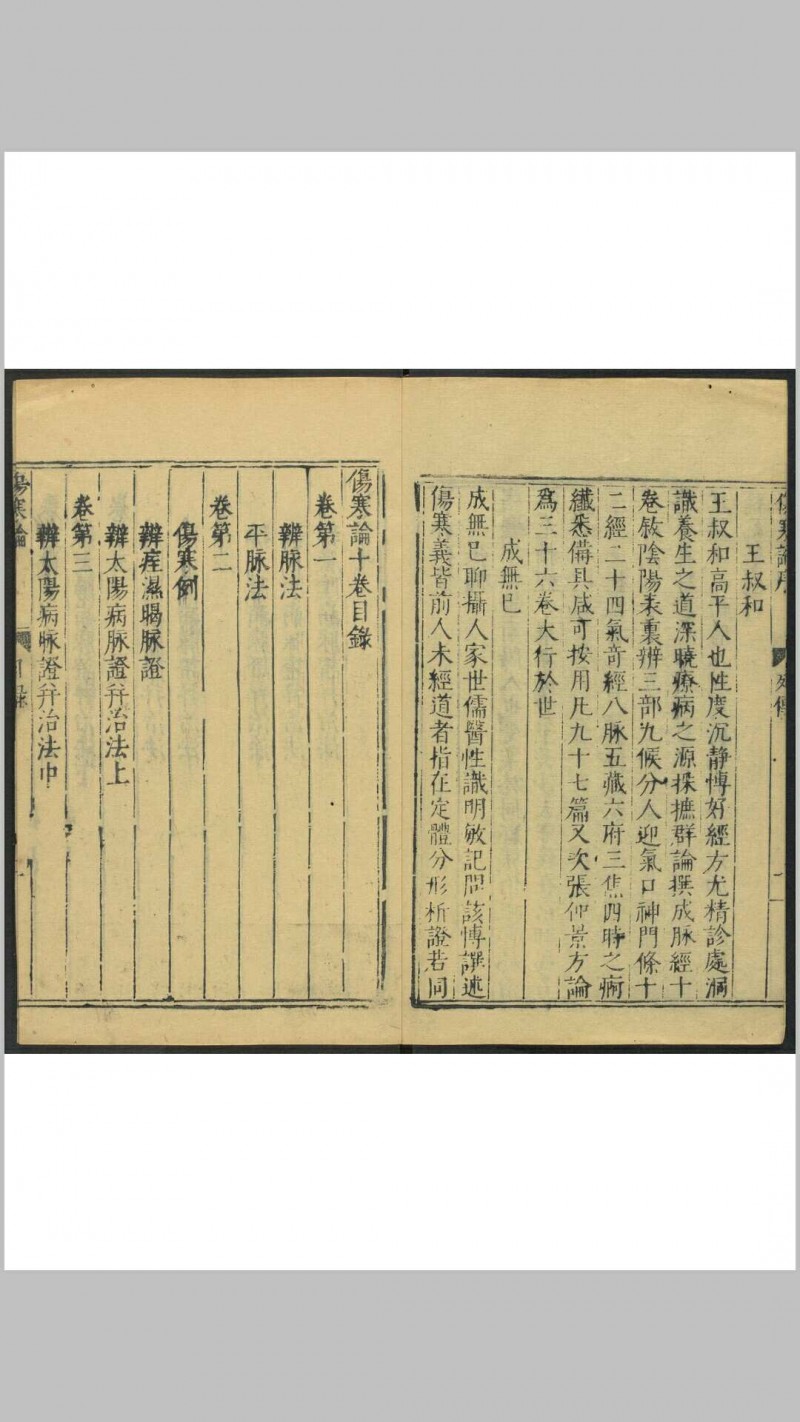 王叔和
王叔和高平人也性度沉静慱好經方尤精診處洞
識養生之道深曉療病之源採摭群論撰成脉經十
卷敘陰陽表裏辨三部九候分人迎氣口神門條十
二經二十四氣奇經八脉五藏六府三焦四時之病
纎悉備具咸可按用凡九十七篇又次張仲景方論
爲三十六卷大行於世
成無已
成無已聊攝人家世儒醫性識明敏記問該慱譔述
傷寒義皆前人未經道者指在定體分形析證若同
傷寒論十卷目錄
卷第一
辨脉法
平脉法
卷第二
傷寒例
辨痓濕暍脉證
辨太陽病脉證并治法上
卷第三
辨太陽病脉證并治法中
傷寒論